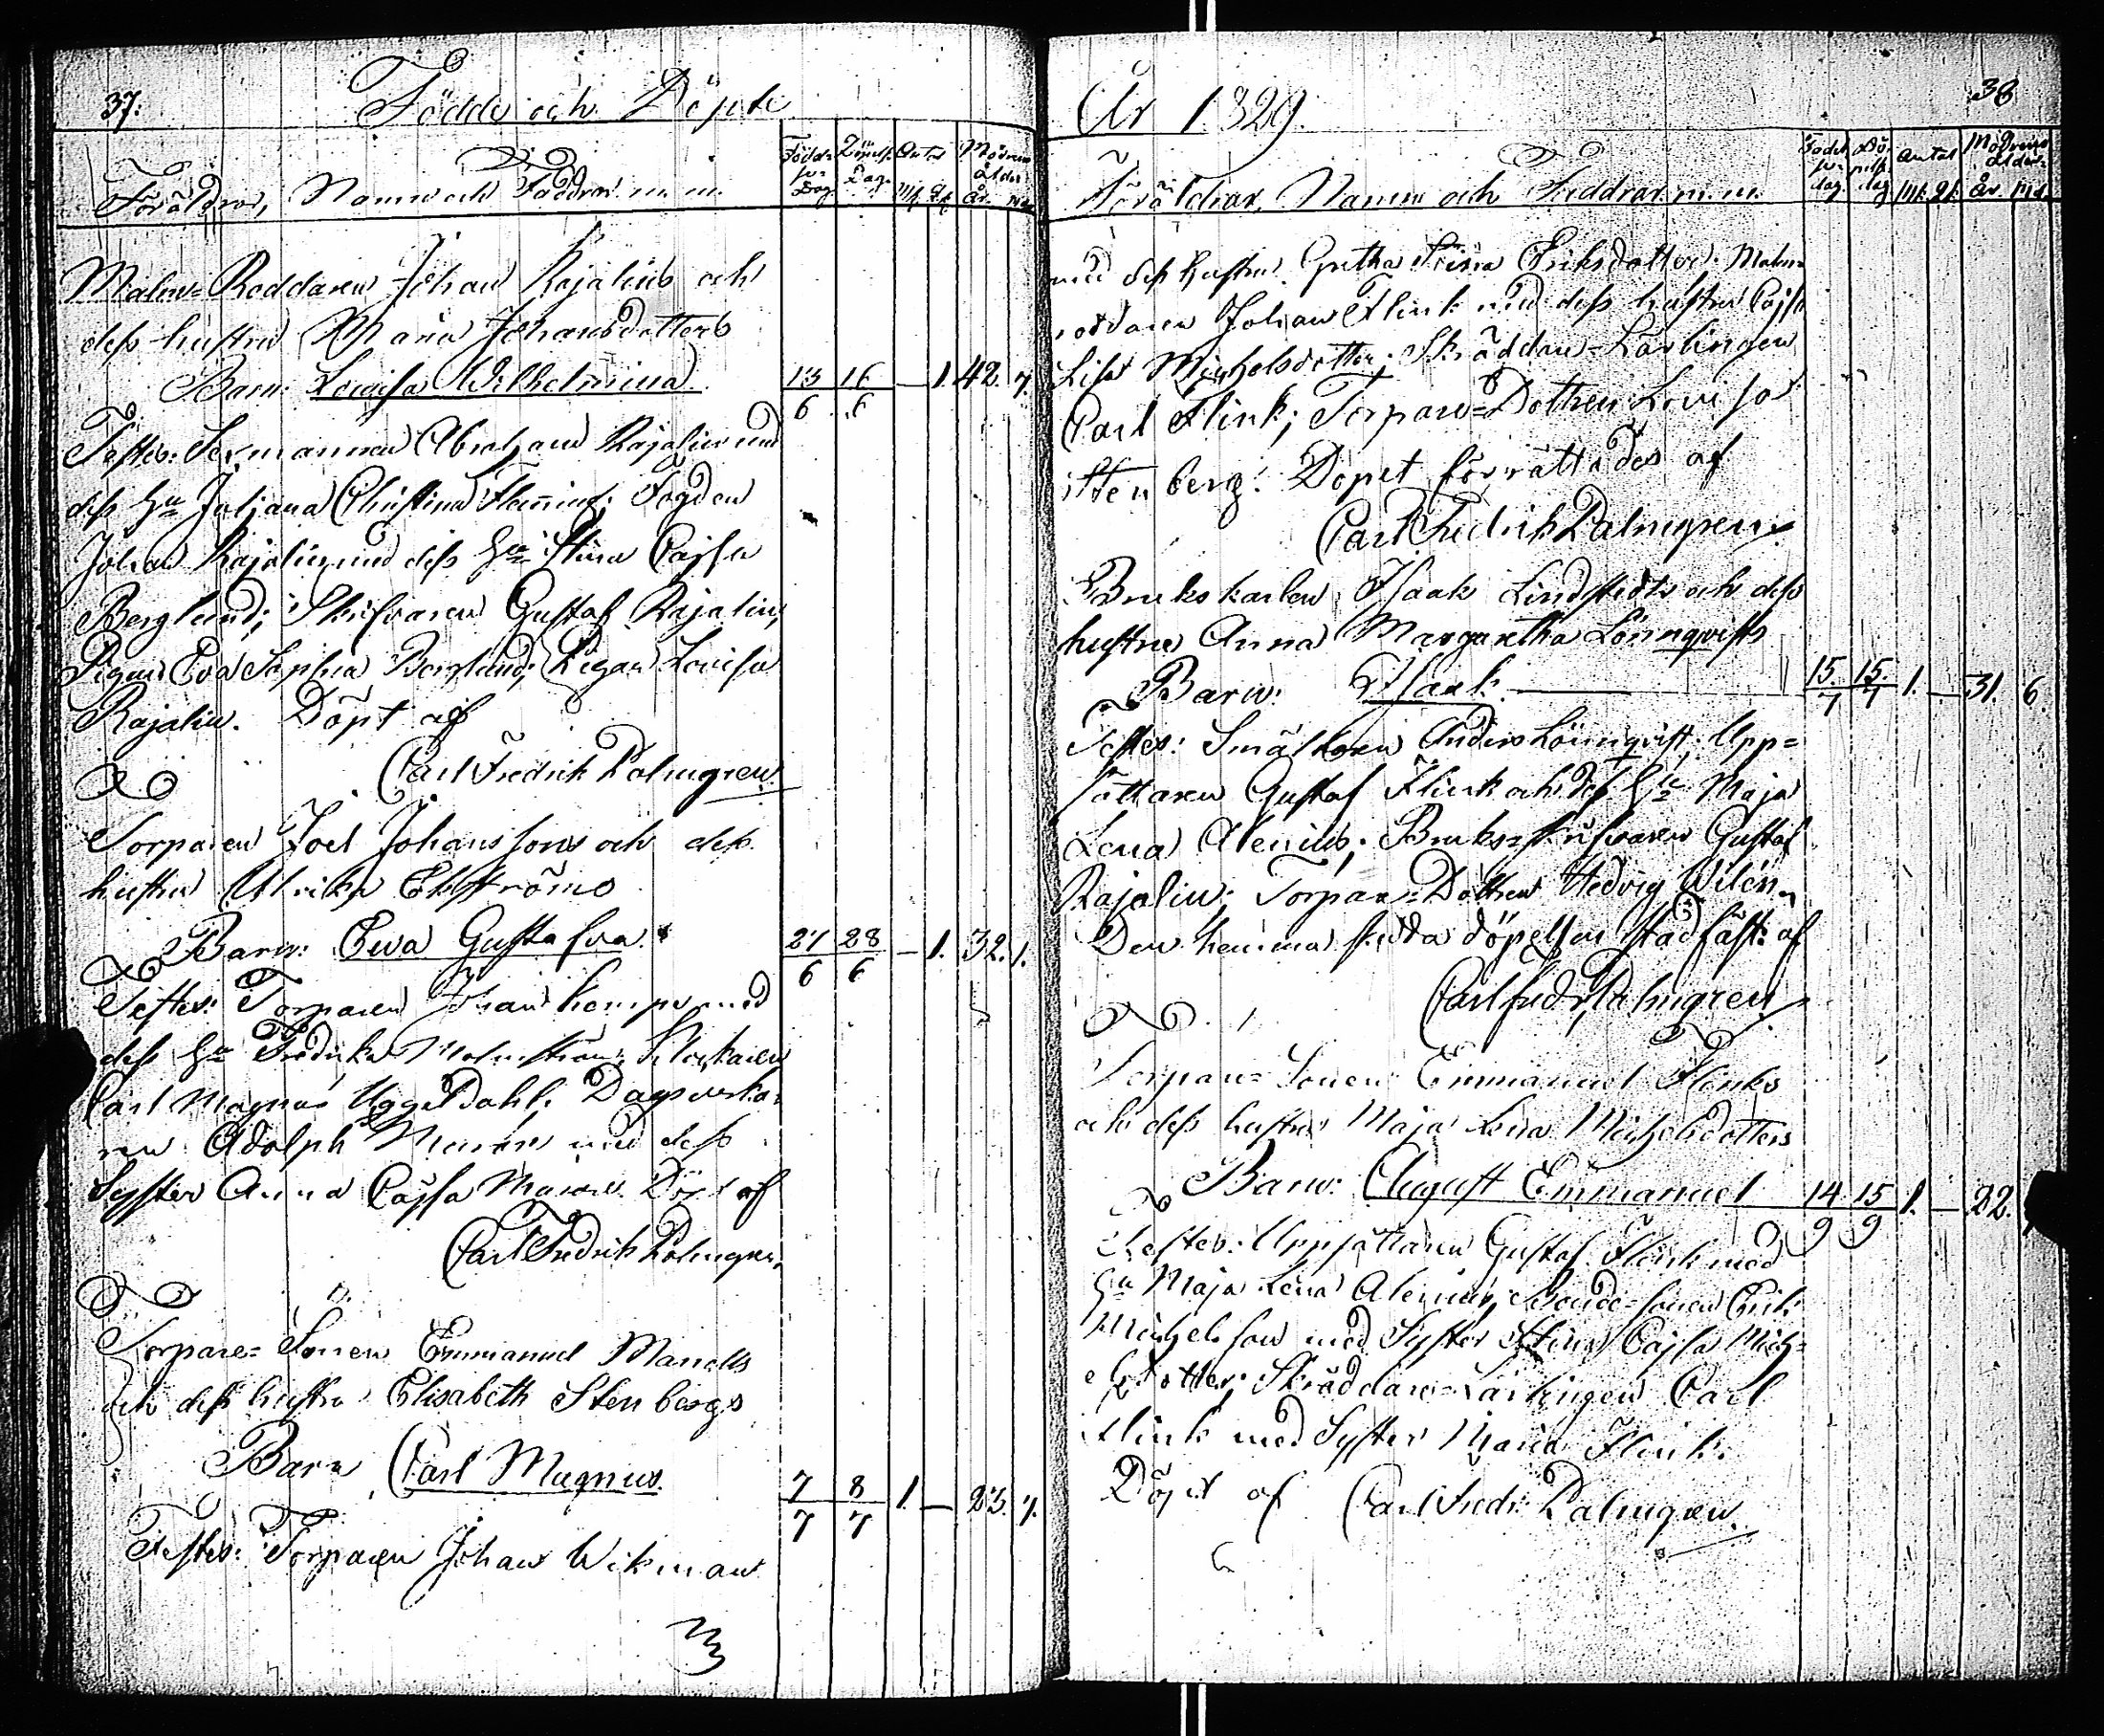 37.
Födde och Döpte
Föräldrar, Namn och Faddrar m. m.
Födelse-Dag
Döpels. Dag.
Antal Mk. Qk.
Mödrens ålder År. Md.
Malm-Roddaren Johan Rajalins och
dess hustru Maria Johansdotters
Barn: Lowisa Wilhelmina 13/6 16/6 — 1. 42. 7.
Testes: Sexmannen Abraham Rajalin med
dess Hu Juljana Christina Flemink; Fogden
Johan Rajalin med dess Hu Stina Cajsa
Berglund; Skrifvaren Gustaf Rajalin;
Pigan Eva Sophia Berglund; Pigan Lovisa
Rajalin. Döpt af
Carl Fredrik Palmgren.
Torparen Joel Johanssons och dess
hustru Ulrika Ekströms
Barn: Ewa Gustafva 27/6 28/6 — 1. 32. 1.
Testes: Torparen Johan Kempe med
dess Hu Fredrika Malmström; Klockaren
Carl Magnus Uggeldahl; Dagsverka-
ren Adolph med dess
Syster Anna Cajsa Döpt af
Carl Fredrik Palmgren.
Torpare-Sonen Emmanuel Manells
och dess hustru Elisabeth Stenbergs
Barn Carl Magnus. 7/7 8/7 1 — 23. 7.
Testes: Torparen Johan Wikman
År 1829.
38
Föräldrar, Namn och Faddrar. m. m.
Födelse-dag.
Döpels. dag
Antal Mk. Qk.
Mödrens ålder År. Md.
med dess hustru Gretha Stina Eriksdotter. Malm-
roddaren Johan Flink med dess hustru Cajsa
Lisa Michelsdotter; Skräddare-Lärlingen
Carl Flink; Torpare-Dottren Lovisa
Stenberg. Dopet förrättades af
Carl Fredrik Palmgren.
Brukskarlen Isaak Lindstedts och dess
hustru Anna Margaretha Lönnqvists
Barn: Isaak — 15./7 15./7 1. — 31. 6.
Testes: Smältaren Anders Lönnqvist; Upp-
sättaren Gustaf Flink och dess Hu Maja
Lena Alenius; Bruks-skrifvaren Gustaf
Rajalin; Torpare-Dottren Hedvig Wilén.
Den hemma skedda döpelsen stadfäst: af
Carl Fredr. Palmgren
Torpare-Sonen Emmanuel Flinks
och dess hustru Maja Lena Michelsdotters
Barn: August Emmanuel 14/9 15/9 1. — 22.
Testes: Uppsättaren Gustaf Flink med
Hu Maja Lena Alenius; Bonde-sonen Erik
Michelsson med Syster Stina Cajsa Mich-
elsdotter; Skräddare-Lärlingen Carl
Flink med Syster Maria Flink.
Döpt af Carl Fredr: Palmgren.